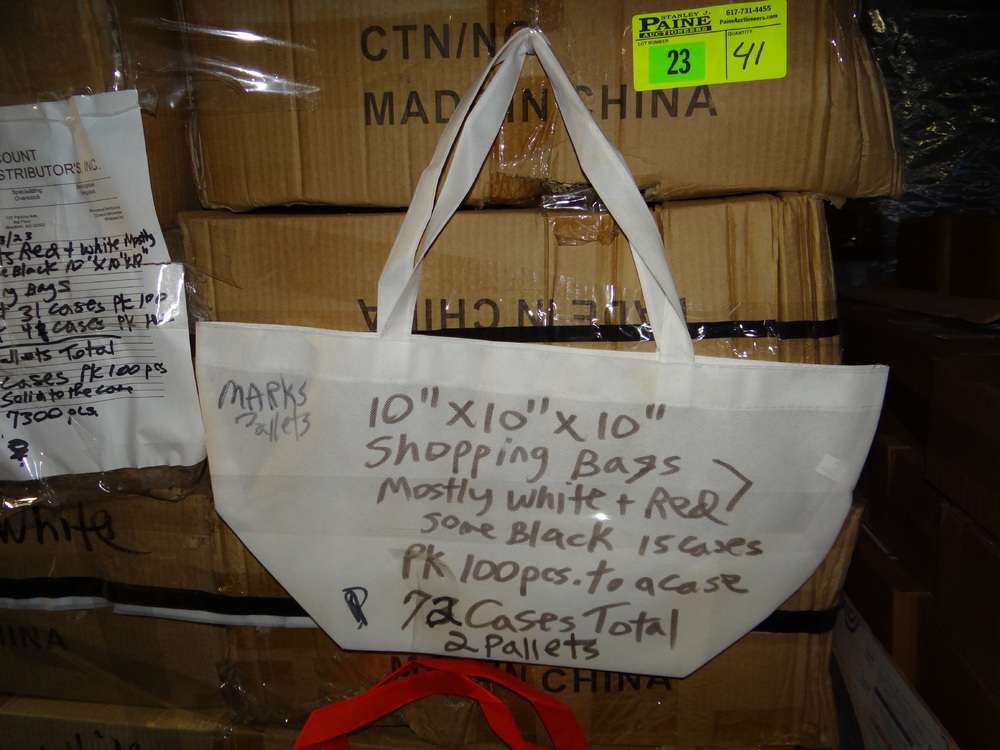 CTN/NO
MADE IN CHINA
STANLEY J.
PAINE
AUCTIONEERS
617-731-4455
PaineAuctioneers.com
LOT NUMBER
23
QUANTITY
41
MADE IN CHINA
COUNT
STRIBUTOR'S INC.
Specializing
Overstock
3/23
Red + White Mostly
Black 10"x10"x10"
Bags
31 Cases PK 100
41 cases PK
allets Total
Cases PK 100 pcs
Solid to the case
7300 pcs
White
MARKS
Pallets
10" x 10" x 10"
Shopping Bags
Mostly White + Red
some Black 15 cases
PK 100 pcs. to a case
72 Cases Total
2 Pallets
INA
MADE IN CHINA
White